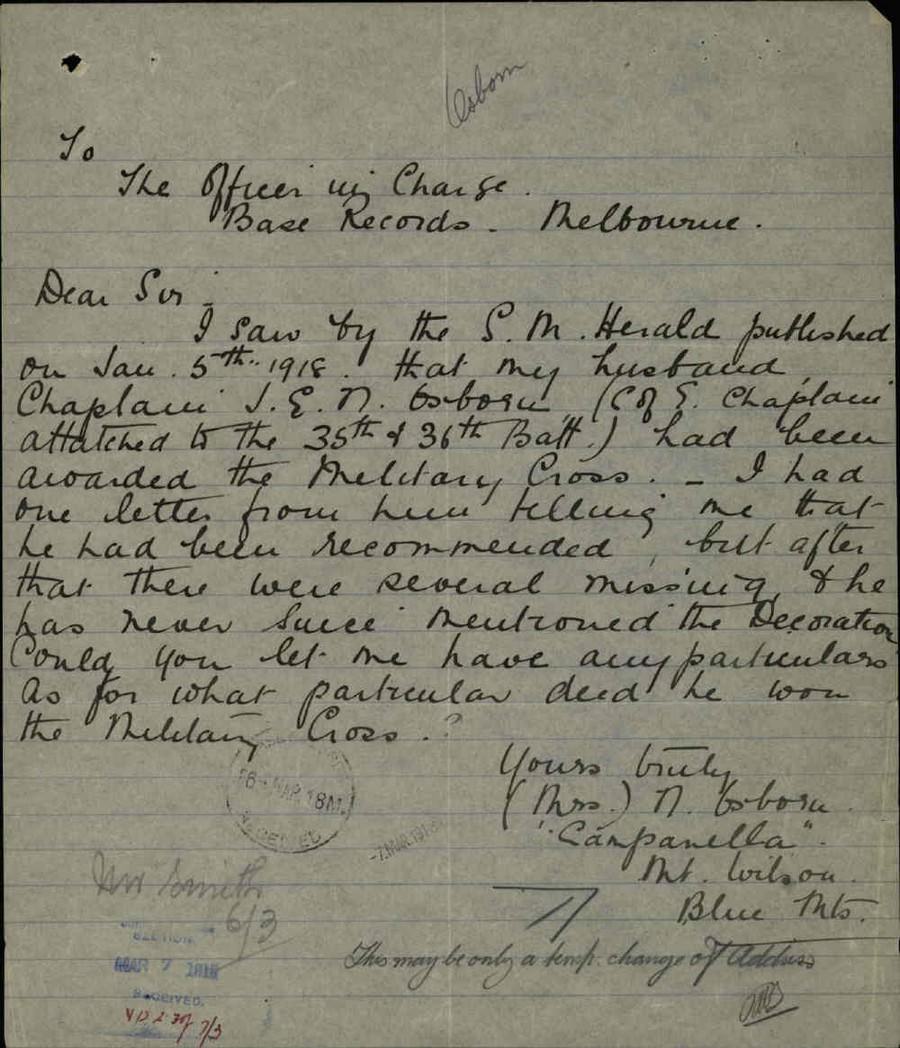 Osborn
To
The Officer in Charge.
Base Records. Melbourne.
Dear Sir -
I saw by the S. M. Herald published
on Jan. 5th. 1918. that my husband,
Chaplain J. E. N. Osborn (C of E. Chaplain
attatched to the 35th & 36th Batt.) had been
awarded the Military Cross. - I had
one letter from him telling me that
he had been recommended, but after
that there were several missing, & he
has never since mentioned the Decoration
Could you let me have any particulars
as for what particular deed he won
the Military Cross.?
Yours truly
(Mrs.) N. Osborn.
"Campanella".
Mt. Wilson.
Blue Mts.
6 - MAR. 18 M.
RECEIVED
-7.MAR.1918
Mr Smith
6/3
SECTION
MAR 7 1918
RECEIVED.
7/3
This may be only a temp. change of Address